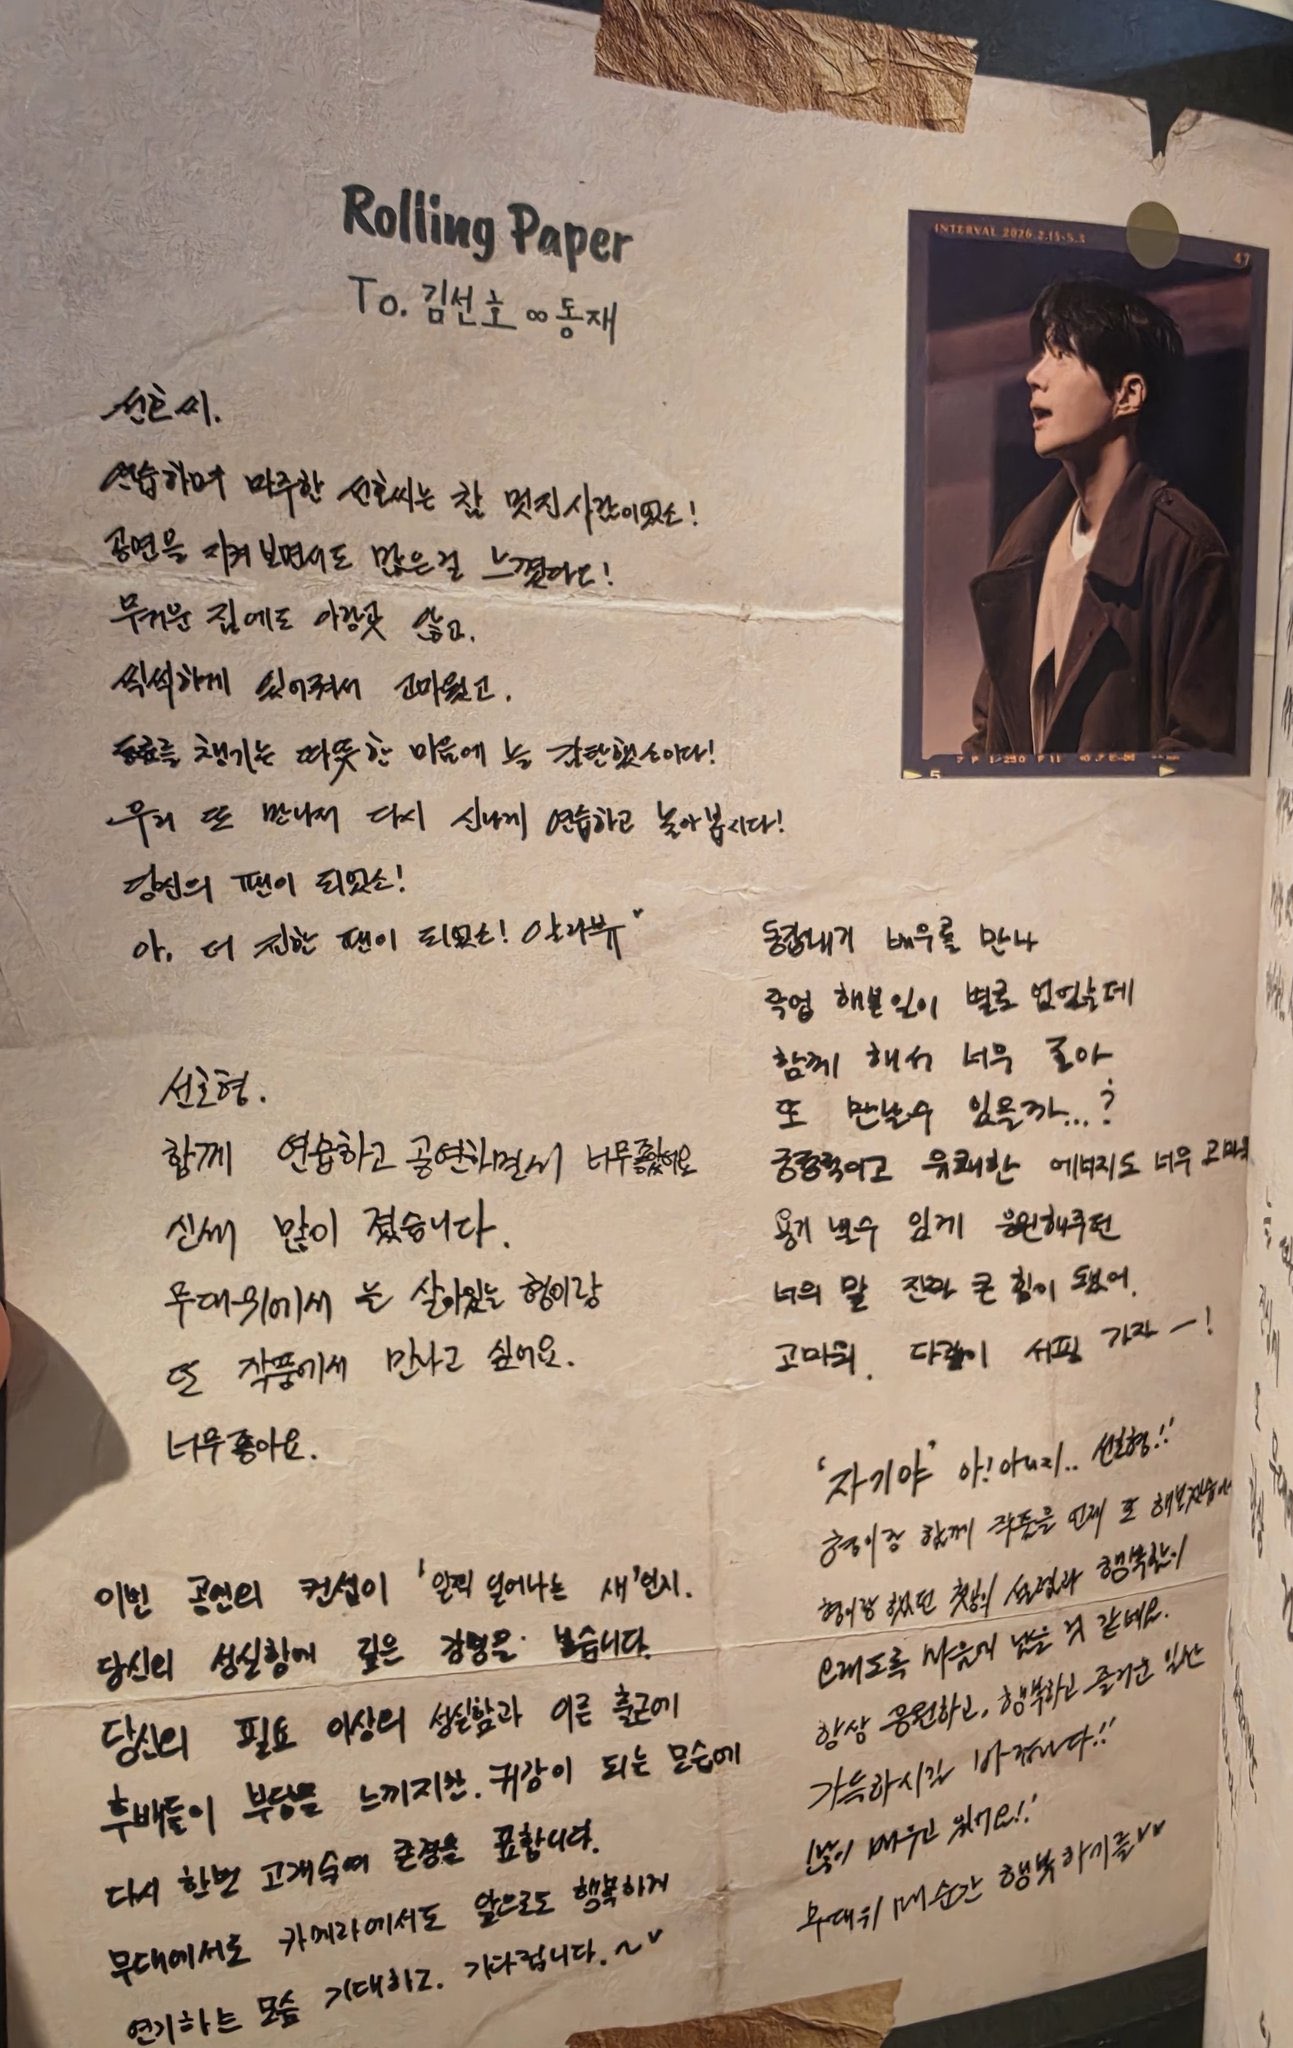 Rolling Paper
To. 김선호 ∞ 동재
INTERVAL 2026.2.15-5.3
47
선호씨.
연습하며 마주한 선호씨는 참 멋진 사람이었소!
공연을 지켜보면서도 많은걸 느꼈다오!
무거운 짐에도 아랑곳 않고,
씩씩하게 있어줘서 고마웠고,
동료를 챙기는 따뜻한 마음에 늘 감탄했소이다!
우리 또 만나서 다시 신나게 연습하고 놀아봅시다!
당신의 팬이 되었소!
아, 더 진한 팬이 되었소! 알라뷰
5
선호형.
함께 연습하고 공연하면서 너무좋았어요
신세 많이 졌습니다.
무대위에서 늘 살아있는 형이랑
또 작품에서 만나고 싶어요.
너무좋아요.
이번 공연의 컨셉이 '일찍 일어나는 새'인지.
당신의 성실함에 깊은 감명을 받습니다.
당신의 필요 이상의 성실함과 이른 출근에
후배들이 부담을 느끼지만, 귀감이 되는 모습에
다시 한번 고개숙여 존경을 표합니다.
무대에서도 카메라에서도 앞으로도 행복하게
연기하는 모습 기대하고, 기다립니다.~
동갑내기 배우를 만나
작업 해본 일이 별로 없었는데
함께 해서 너무 좋아
또 만날수 있을까...?
긍정적이고 유쾌한 에너지도 너무 고마워
용기 낼수 있게 응원해주던
너의 말 진짜 큰 힘이 됐어.
고마워. 다같이 서핑 가자ー!
'자기야' 아! 아니지.. 선호형!!
형이랑 함께 작품을 언제 또 해보겠습니까
형이랑 했던 첫 설렘과 행복함이
오래도록 마음에 남을 것 같네요.
항상 응원하고, 행복하고 즐거운 일만
가득하시길 바랍니다!!
많이 배우고 있어요!!
무대위 매순간 행복하기를